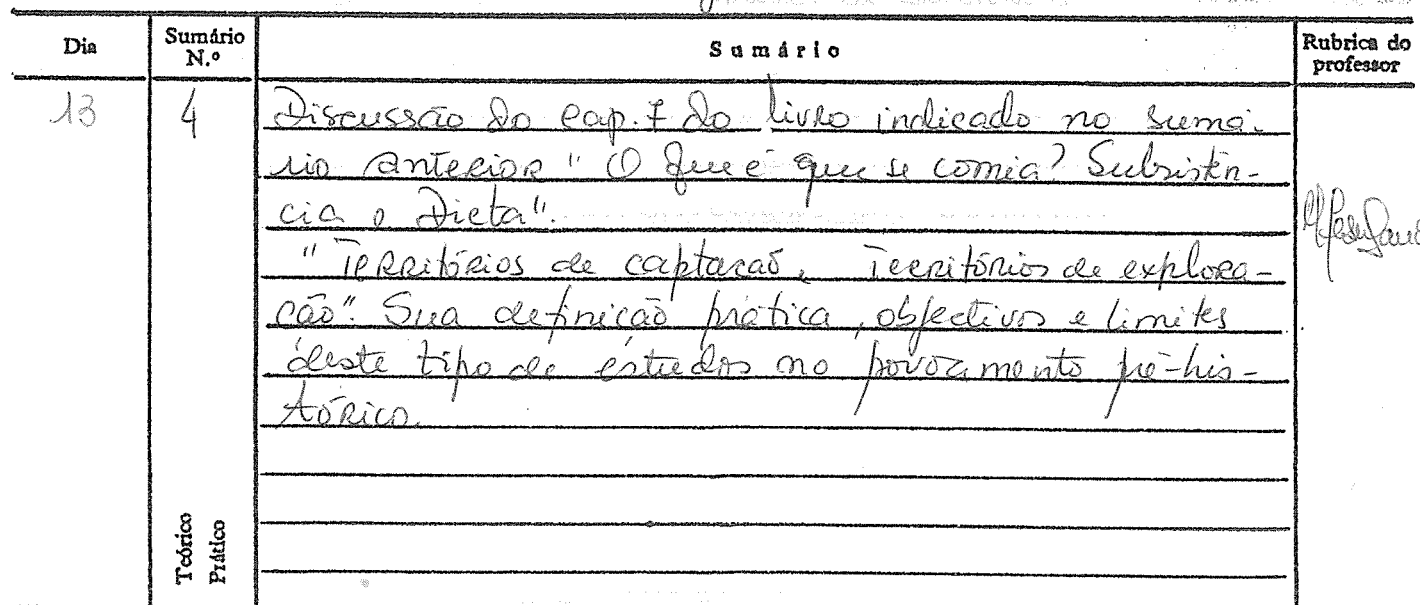 Dia Sumário N.º Sumário Rubrica do professor
13 4 Discussão do cap. 7 do livro indicado no sumá-
rio anterior "O que é que se comia? Subsistên-
cia e Dieta".
"Territórios de captação, Territórios de explora-
ção". Sua definição prática, objectivos e limites
deste tipo de estudos no povoamento pré-his-
tórico.
Teórico
Prático